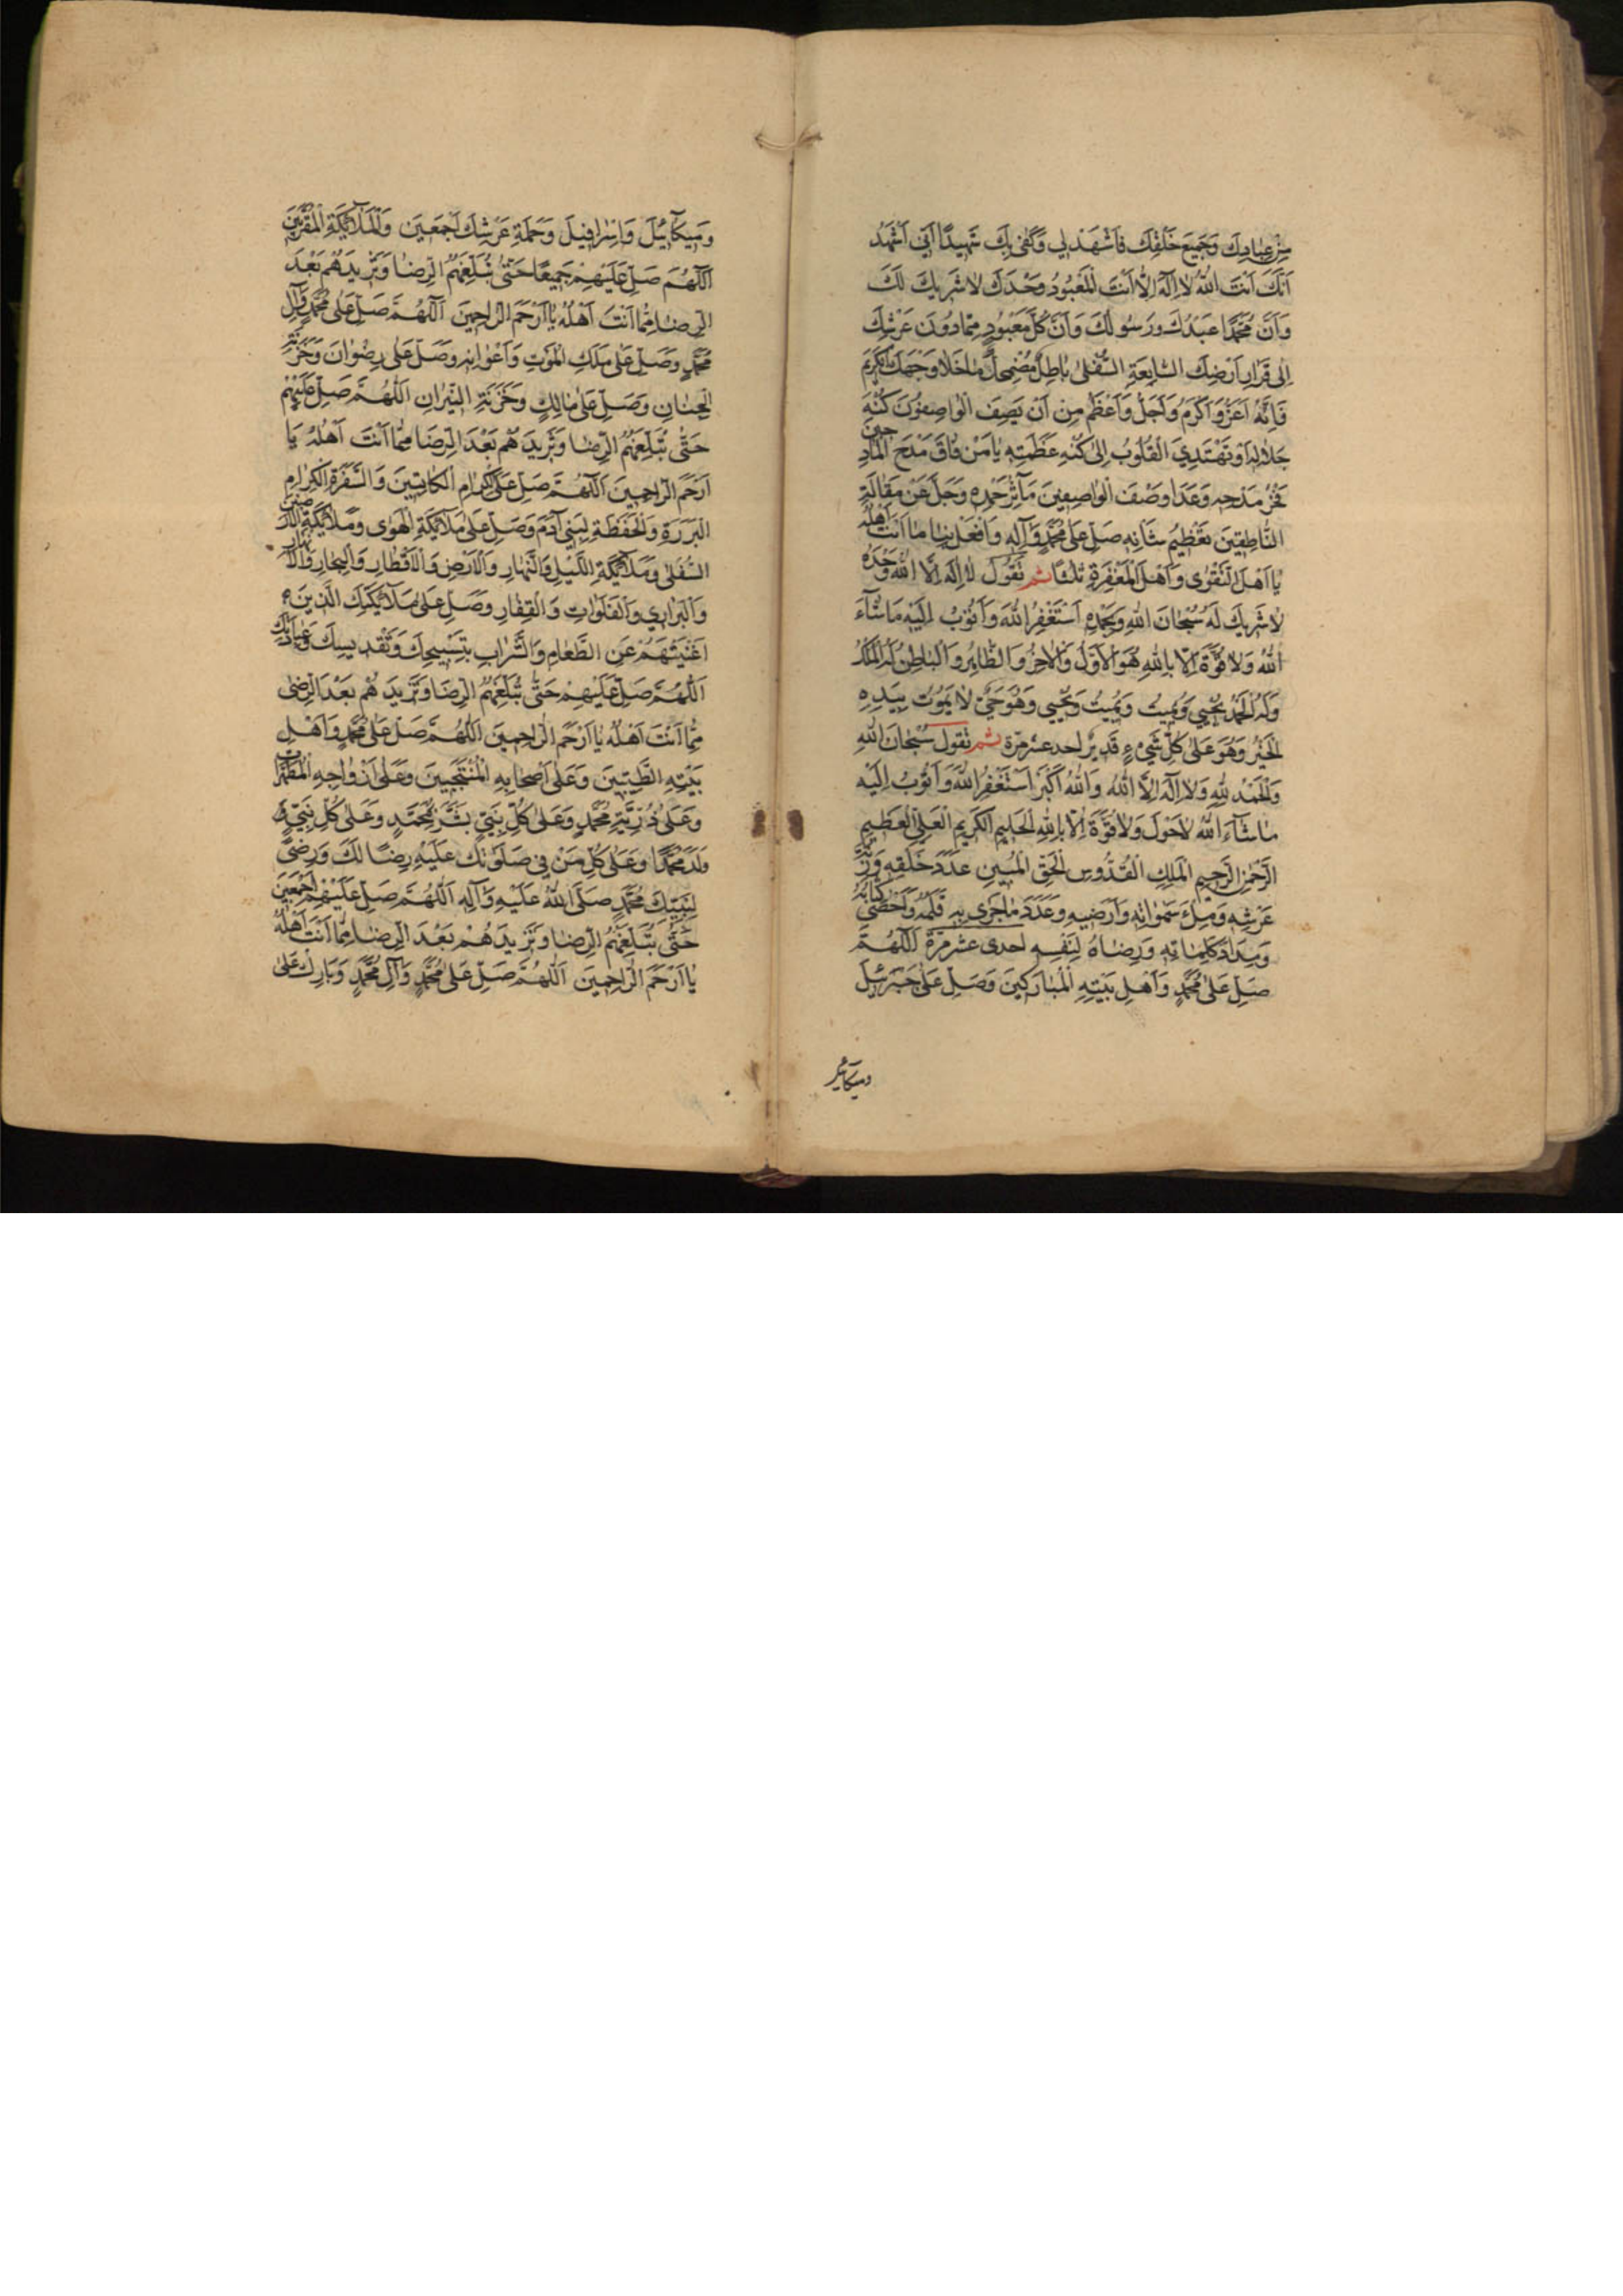 مِنْ عِبادِكَ وَجَمِيعَ خَلْقِكَ فَاشْهَدْ لِي وَكَفى بِكَ شَهِيدًا اَنِّي اَشْهَدُ
اَنَّكَ اَنْتَ اللهُ لا اِلهَ اِلّا اَنْتَ الْمَعْبُودُ وَحْدَكَ لا شَرِيكَ لَكَ
وَاَنَّ مُحَمَّدًا عَبْدُكَ وَرَسُولُكَ وَاَنَّ كُلَّ مَعْبُودٍ مِمّا دُونَ عَرْشِكَ
اِلى قَرارِ اَرْضِكَ السّابِعَةِ السُّفْلى باطِلٌ مُضْمَحِلٌّ ما خَلا وَجْهَكَ الْكَرِيمَ
فَاِنَّهُ اَعَزُّ وَاَكْرَمُ وَاَجَلُّ وَاَعْظَمُ مِنْ اَنْ يَصِفَ الْواصِفُونَ كُنْهَ
جَلالِهِ اَوْ تَهْتَدِيَ الْقُلُوبُ اِلى كُنْهِ عَظَمَتِهِ يا مَنْ فاقَ مَدْحَ الْمادِحِينَ
فَخْرُ مَدْحِهِ وَعَدا وَصْفَ الْواصِفِينَ مَآثِرُ حَمْدِهِ وَجَلَّ عَنْ مَقالَةِ
النّاطِقِينَ تَعْظِيمُ شَانِهِ صَلِّ عَلى مُحَمَّدٍ وَآلِهِ وَافْعَلْ بِنا ما اَنْتَ اَهْلُهُ
يا اَهْلَ التَّقْوى وَاَهْلَ الْمَغْفِرَةِ ثلثًا ثم تَقُولُ لا اِلهَ اِلَّا اللهُ وَحْدَهُ
لا شَرِيكَ لَهُ سُبْحانَ اللهِ وَبِحَمْدِهِ اَسْتَغْفِرُ اللهَ وَاَتُوبُ اِلَيْهِ ما شآءَ
اللهُ وَلا قُوَّةَ اِلّا بِاللهِ هُوَ الْاَوَّلُ وَالْاخِرُ وَالظّاهِرُ وَالْباطِنُ لَهُ الْمُلْكُ
وَلَهُ الْحَمْدُ يُحْيِي وَيُمِيتُ وَيُمِيتُ وَيُحْيِي وَهُوَ حَيٌّ لا يَمُوتُ بِيَدِهِ
الْخَيْرُ وَهُوَ عَلى كُلِّ شَيْءٍ قَدِيرٌ احد عشر مرّة ثم تقول سُبْحانَ اللهِ
وَالْحَمْدُ لِلّهِ وَلا اِلهَ اِلَّا اللهُ وَاللهُ اَكْبَرُ اَسْتَغْفِرُ اللهَ وَاَتُوبُ اِلَيْهِ
ما شآءَ اللهُ لا حَوْلَ وَلا قُوَّةَ اِلّا بِاللهِ الْحَلِيمِ الْكَرِيمِ الْعَلِيِّ الْعَظِيمِ
الرَّحْمنِ الرَّحِيمِ الْمَلِكِ الْقُدُّوسِ الْحَقِّ الْمُبِينِ عَدَدَ خَلْقِهِ وَزِنَةَ
عَرْشِهِ وَمِلْءَ سَمواتِهِ وَاَرَضِيهِ وَعَدَدَ ما جَرى بِهِ قَلَمُهُ وَاَحْصى كِتابُهُ
وَمِدادَ كَلِماتِهِ وَرِضاهُ لِنَفْسِهِ احدى عشر مرّة اَللّهُمَّ
صَلِّ عَلى مُحَمَّدٍ وَاَهْلِ بَيْتِهِ الْمُبارَكِينَ وَصَلِّ عَلى جَبْرَئِيلَ
وميكائيل
وَمِيكآئِيلَ وَاِسْرافِيلَ وَحَمَلَةِ عَرْشِكَ اَجْمَعِينَ وَالْمَلآئِكَةِ الْمُقَرَّبِينَ
اَللّهُمَّ صَلِّ عَلَيْهِمْ جَمِيعًا حَتّى تُبَلِّغَهُمُ الرِّضا وَتَزِيدَهُمْ بَعْدَ
الرِّضا مِمّا اَنْتَ اَهْلُهُ يا اَرْحَمَ الرّاحِمِينَ اَللّهُمَّ صَلِّ عَلى مُحَمَّدٍ وَآلِ
مُحَمَّدٍ وَصَلِّ عَلى مَلَكِ الْمَوْتِ وَاَعْوانِهِ وَصَلِّ عَلى رِضْوانَ وَخَزَنَةِ
الْجِنانِ وَصَلِّ عَلى مالِكٍ وَخَزَنَةِ النِّيرانِ اَللّهُمَّ صَلِّ عَلَيْهِمْ
حَتّى تُبَلِّغَهُمُ الرِّضا وَتَزِيدَهُمْ بَعْدَ الرِّضا مِمّا اَنْتَ اَهْلُهُ يا
اَرْحَمَ الرّاحِمِينَ اَللّهُمَّ صَلِّ عَلَى الْكِرامِ الْكاتِبِينَ وَالسَّفَرَةِ الْكِرامِ
الْبَرَرَةِ وَالْحَفَظَةِ لِبَنِي آدَمَ وَصَلِّ عَلى مَلآئِكَةِ الْهَوى وَمَلآئِكَةِ الْاَرَضِينَ
السُّفْلى وَمَلآئِكَةِ اللَّيْلِ وَالنَّهارِ وَالْاَرْضِ وَالْاَقْطارِ وَالْبِحارِ وَالْاَنْهارِ
وَالْبَرارِي وَالْفَلَواتِ وَالْقِفارِ وَصَلِّ عَلى مَلآئِكَتِكَ الَّذِينَ
اَغْنَيْتَهُمْ عَنِ الطَّعامِ وَالشَّرابِ بِتَسْبِيحِكَ وَتَقْدِيسِكَ وَعِبادَتِكَ
اَللّهُمَّ صَلِّ عَلَيْهِمْ حَتّى تُبَلِّغَهُمُ الرِّضا وَتَزِيدَهُمْ بَعْدَ الرِّضى
مِمّا اَنْتَ اَهْلُهُ يا اَرْحَمَ الرّاحِمِينَ اَللّهُمَّ صَلِّ عَلى مُحَمَّدٍ وَاَهْلِ
بَيْتِهِ الطَّيِّبِينَ وَعَلى اَصْحابِهِ الْمُنْتَجَبِينَ وَعَلى اَزْواجِهِ الْمُطَهَّراتِ
وَعَلى ذُرِّيَّةِ مُحَمَّدٍ وَعَلى كُلِّ نَبِيٍّ بَشَّرَ بِمُحَمَّدٍ وَعَلى كُلِّ نَبِيٍّ
وَلَدَ مُحَمَّدًا وَعَلى كُلِّ مَنْ فِي صَلَوتِكَ عَلَيْهِ رِضًا لَكَ وَرِضىً
لِنَبِيِّكَ مُحَمَّدٍ صَلَّى اللهُ عَلَيْهِ وَآلِهِ اَللّهُمَّ صَلِّ عَلَيْهِمْ اَجْمَعِينَ
حَتّى تُبَلِّغَهُمُ الرِّضا وَتَزِيدَهُمْ بَعْدَ الرِّضا مِمّا اَنْتَ اَهْلُهُ
يا اَرْحَمَ الرّاحِمِينَ اَللّهُمَّ صَلِّ عَلى مُحَمَّدٍ وَآلِ مُحَمَّدٍ وَبارِكْ عَلى